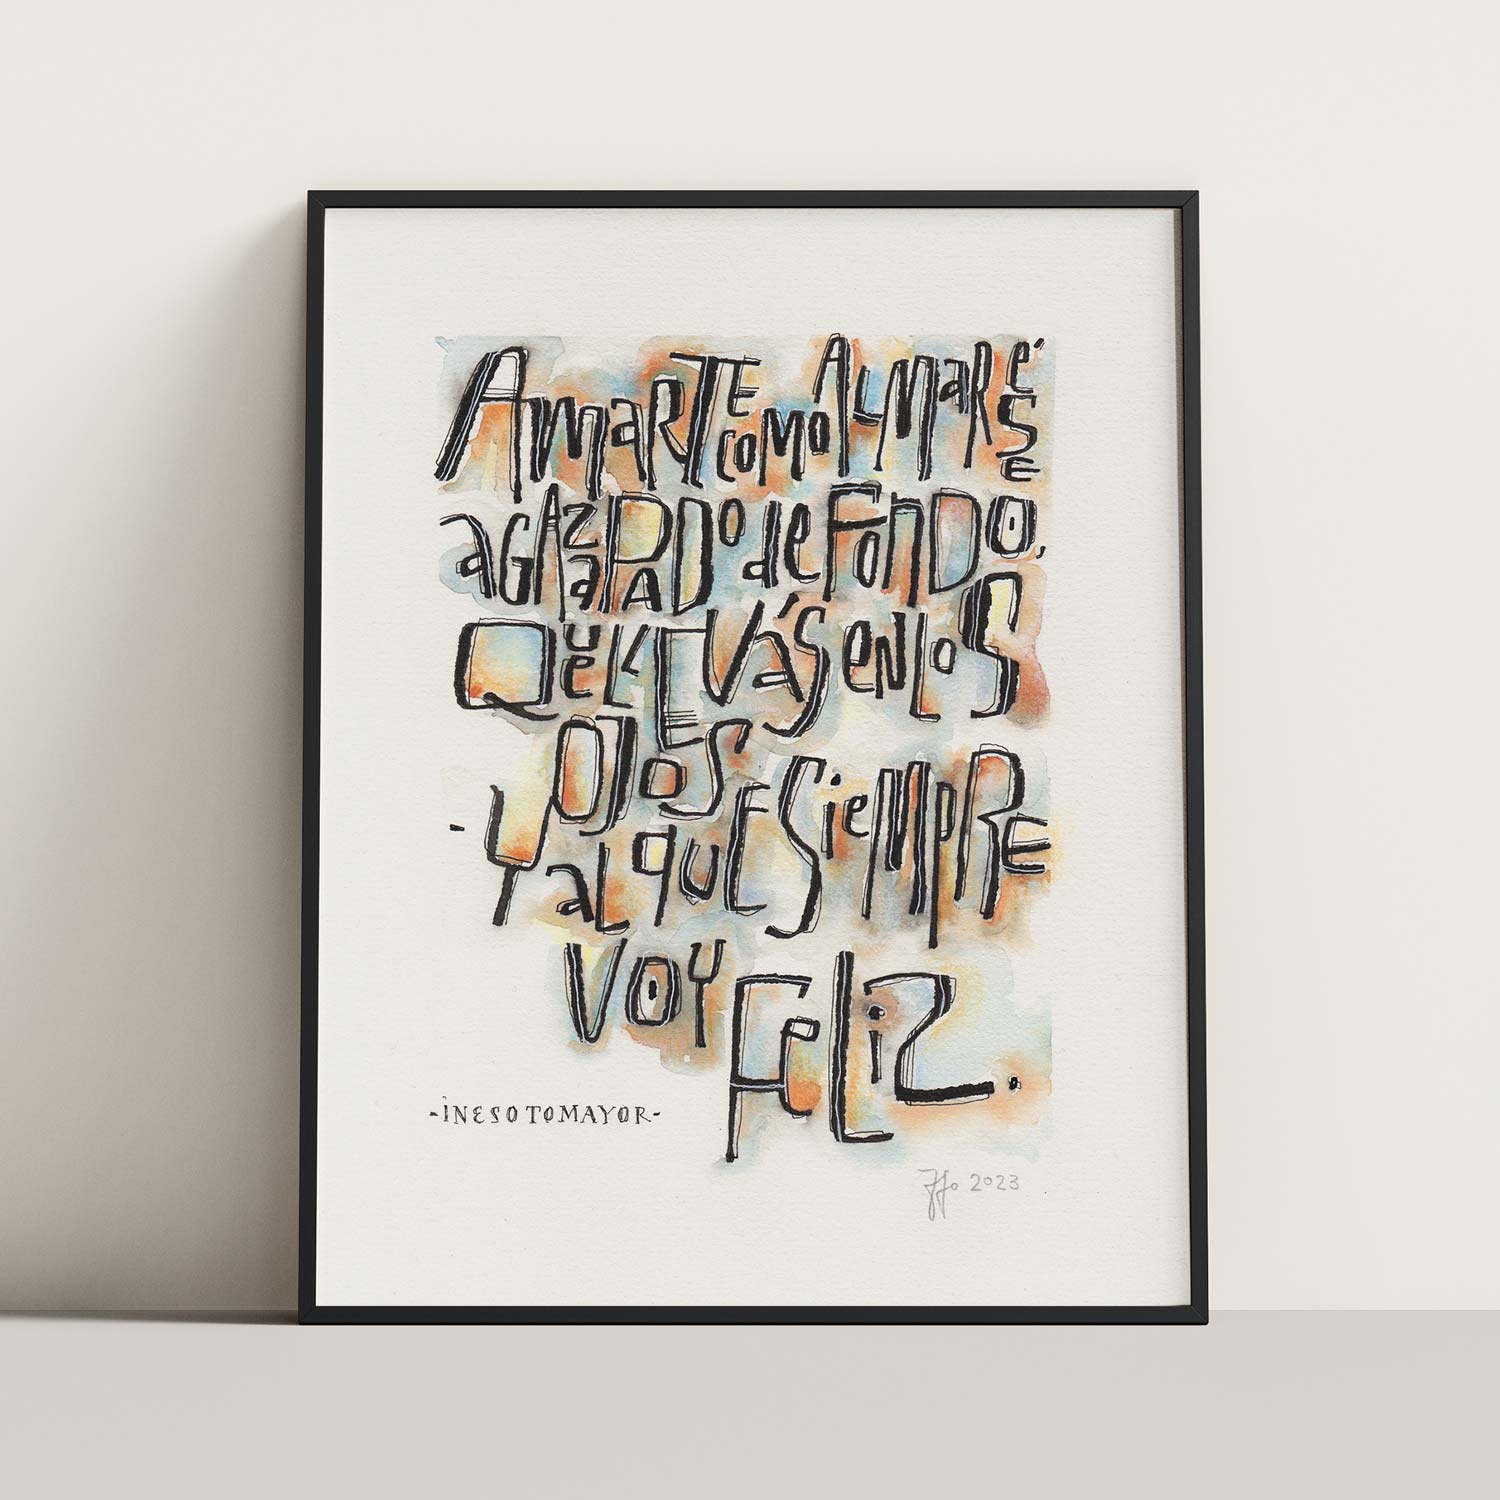 Amarte como al mar, ése
agazapado de fondo,
que llevás en los
ojos
- y al que siempre
voy feliz.
-INÉS SOTOMAYOR-
JJo 2023